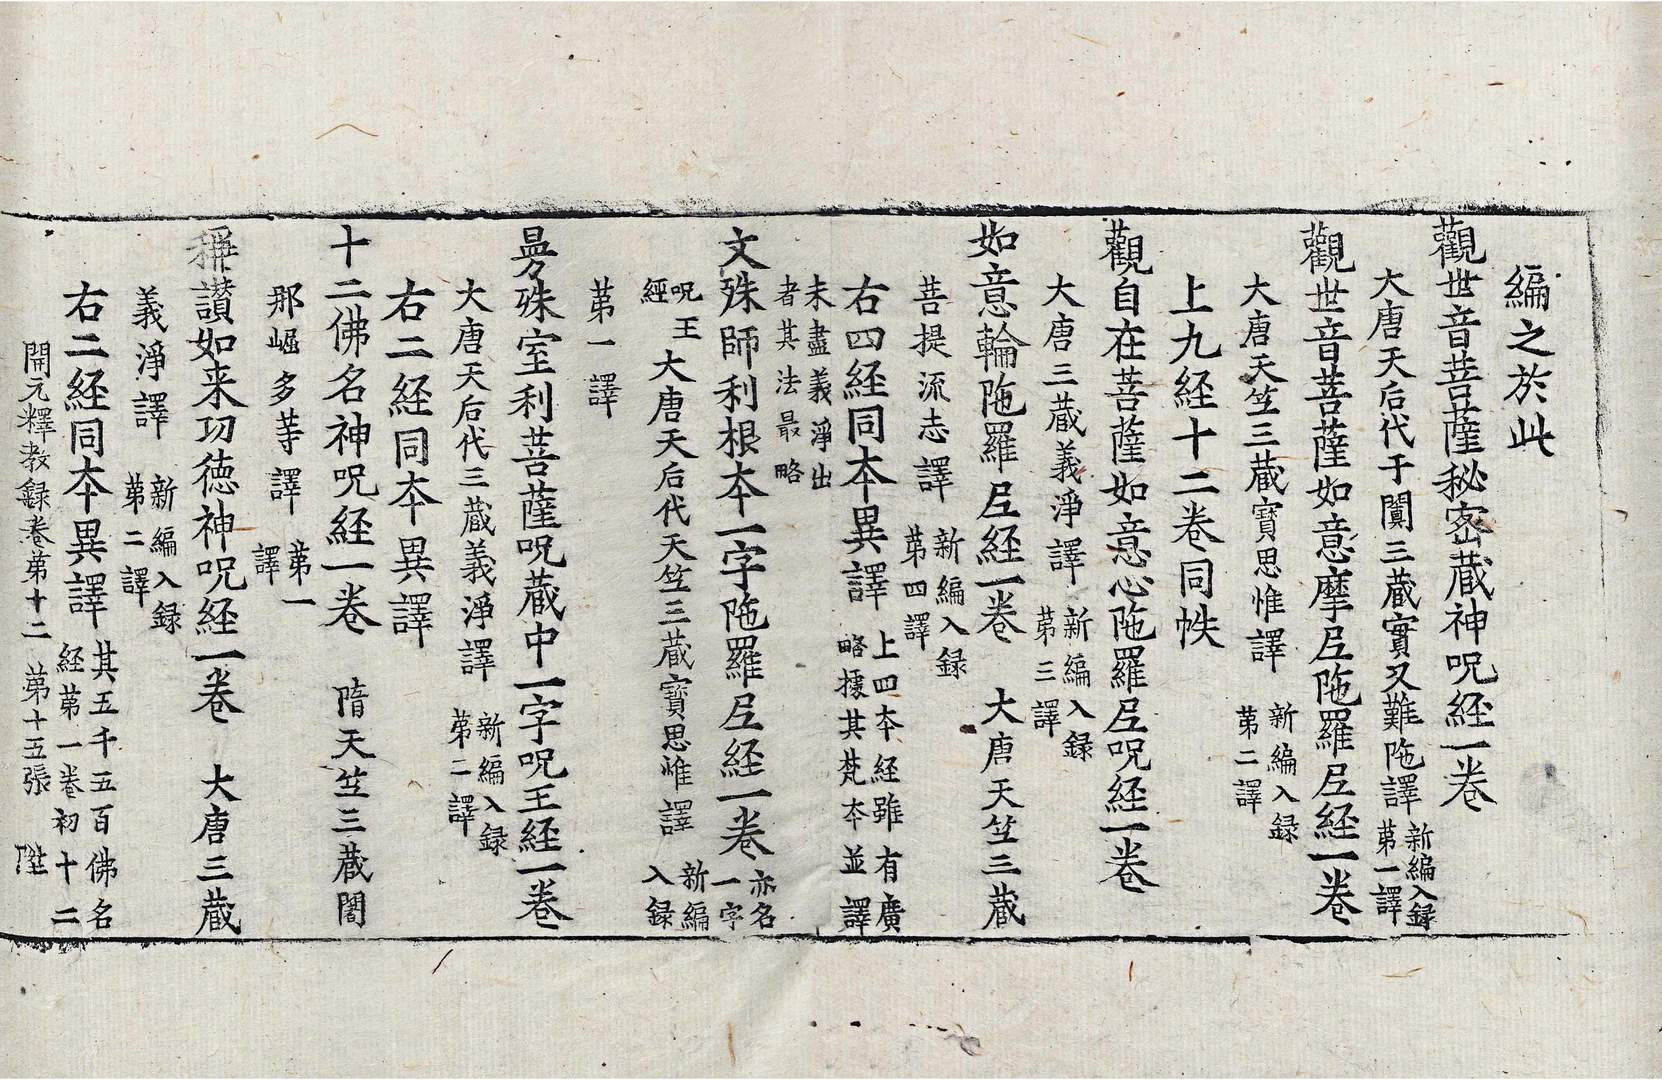 編之於此
觀世音菩薩秘密蔵神呪経一卷
大唐天后代于闐三蔵實叉難陁譯 新編入録 苐一譯
觀世音菩薩如意摩尼陁羅尼経一卷
大唐天竺三蔵寶思惟譯 新編入録 苐二譯
上九経十二卷同帙
觀自在菩薩如意心陁羅尼呪経一卷
大唐三蔵義淨譯 新編入録 苐三譯
如意輪陁羅尼経一卷 大唐天竺三蔵
菩提流志譯 新編入録 苐四譯
右四経同夲異譯 上四夲経雖有廣略據其梵夲並譯
未盡義淨出者其法最略
文殊師利根夲一字陁羅尼経一卷 亦名一字
呪王経 大唐天后代天竺三蔵寶思惟譯 新編入録
苐一譯
曼殊室利菩薩呪蔵中一字呪王経一卷
大唐天后代三蔵義淨譯 新編入録 苐二譯
右二経同夲異譯
十二佛名神呪経一卷 隋天竺三蔵闍
那崛多等譯 苐一譯
稱讃如来功徳神呪経一卷 大唐三蔵
義淨譯 新編入録 苐二譯
右二経同夲異譯 其五千五百佛名経苐一卷初十二
開元釋教録卷苐十二 苐十五張